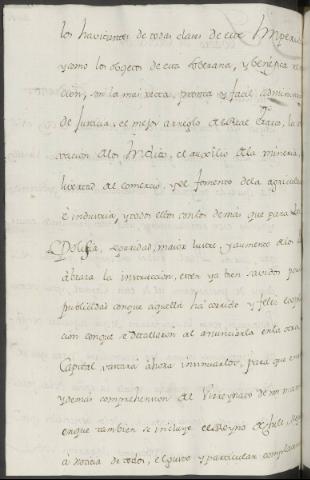 los havitantes de todas clases de este Imperio
y como los obgetos de esta soberana, y benefica
cion, son la mas recta, pronta y facil administra
de Justicia, el mejor arreglo del Real Erario, la
vacion de los Indios, el auxilio de la mineria,
livertad al comercio, y el fomento de la agricultu
è industria, y todos ellos con los demas que para
Policia, seguridad, maior lustre, y aumento de los
abraza la instruccion, esten ya bien savidos por
publicidad con que aquella ha corrido y feliz
cion con que se detallaron al anunciarla en la otra
Capital vastarà ahora insinuarlos, para que en
y demas comprehension del Virreynato de mi man
en que tambien se incluye el Reyno de
à noticia de todos, el gusto y particular complacen